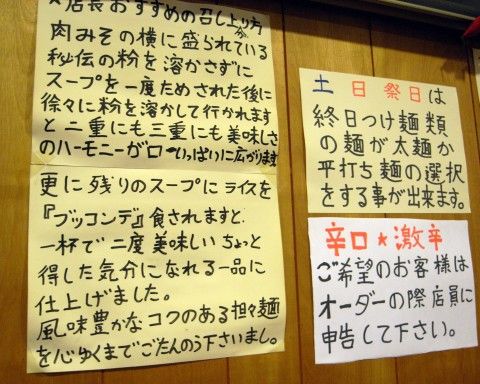 ★店長おすすめの召し上り方
肉みその横に盛られている
秘伝の粉を溶かさずに
スープを一度ためされた後に
徐々に粉を溶かして行かれます
と二重にも三重にも美味しさ
のハーモニーが口いっぱいに広がります
更に残りのスープにライスを
『ブッコンデ』食されますと、
一杯で二度美味しいちょっと
得した気分になれる一品に
仕上げました。
風味豊かなコクのある担々麺
を心ゆくまでごたんのう下さいまし。
土日祭日は
終日つけ麺類
の麺が太麺か
平打ち麺の選択
をする事が出来ます。
辛口★激辛
ご希望のお客様は
オーダーの際店員に
申告して下さい。